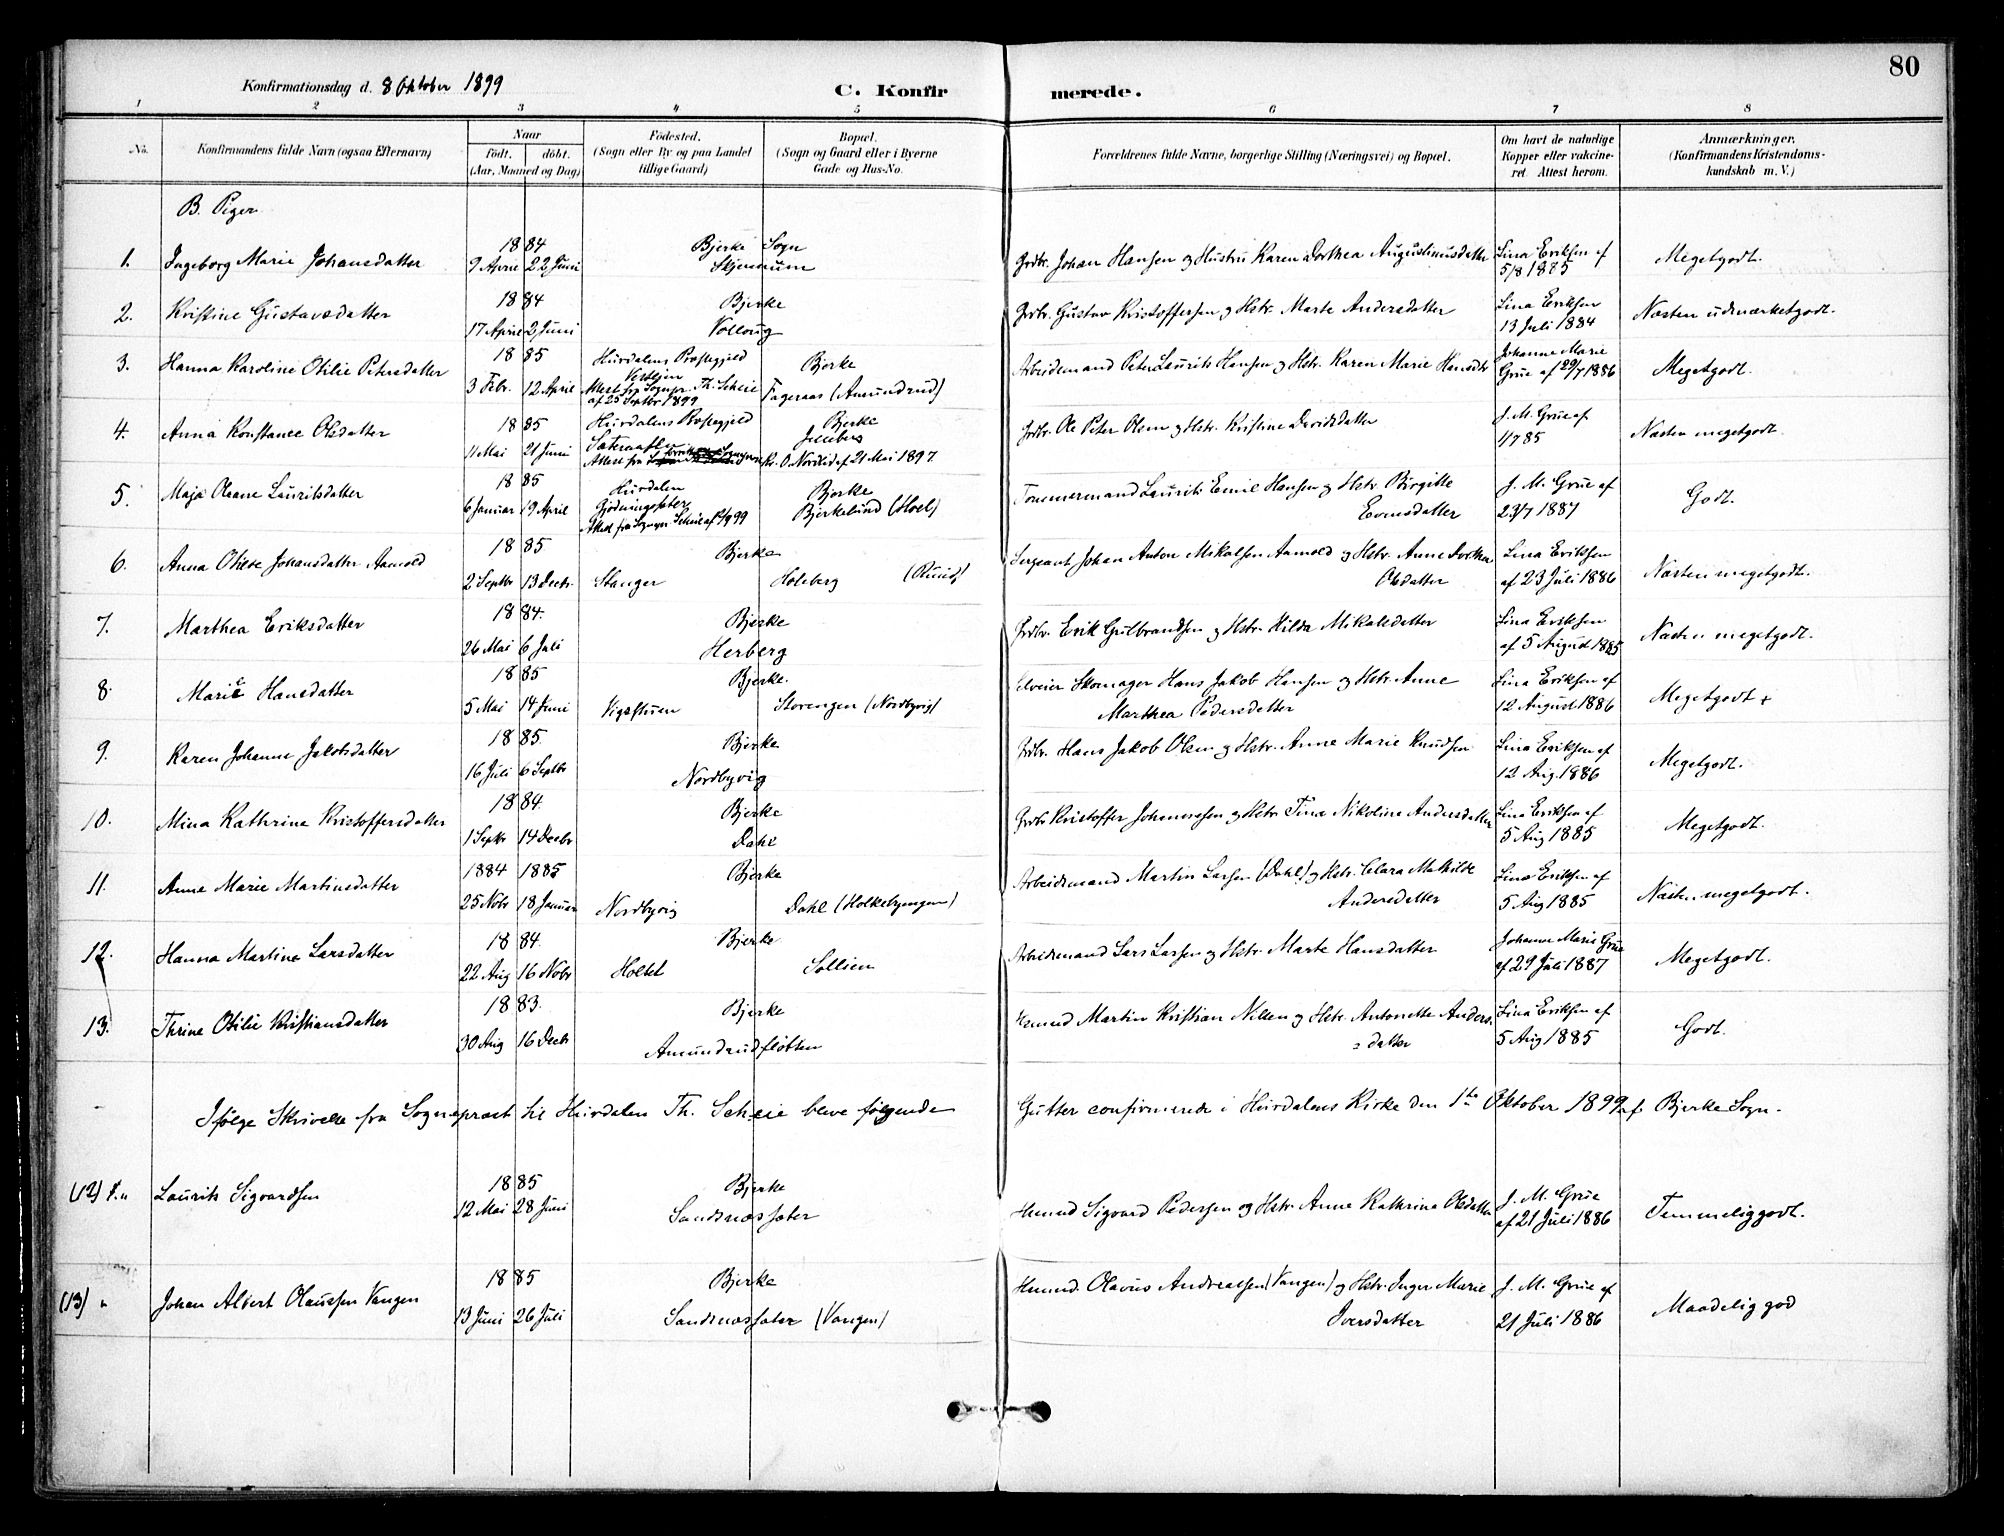 80
Konfirmationsdag d. 8 Oktober 1899
C. Konfirmerede.
1 2 3 4 5 6 7 8
No.
Konfirmandens fulde Navn (ogsaa Efternavn)
Naar
født. døbt.
(Aar, Maaned og Dag)
Fødested.
(Sogn eller By og paa Landet
tillige Gaard)
Bopæl.
(Sogn og Gaard eller i Byerne
Gade og Hus-No.
Forældrenes fulde Navne, borgerlige Stilling (Næringsvei) og Bopæl.
Om havt de naturlige
Kopper eller vakcine-
ret. Attest herom.
Anmærkninger.
(Konfirmandens Kristendoms-
kundskab m. V.)
B. Piger
1884 Bjerke Sogn
1. Ingeborg Marie Johansdatter 9 April 22 Juni Skjennum Grdbr. Johan Hansen og Hustru Karen Dorthea Augustinusdatter Lina Eriksen af
5/8 1885 Megetgodt.
1884 Bjerke
2. Kristine Gustavsdatter 17 April 2 Juni Volloug Grdbr. Gustav Kristoffersen og Hstr. Marte Andersdatter Lina Eriksen
13 Juli 1884 Næsten udmærketgodt.
1885 Hurdalens Præstegjeld Bjerke
3. Hanna Karoline Otilie Petersdatter 3 Febr. 12 April
Attest fra Sognepr. Th. Scheie
af 25 Septbr 1899 Fageraas (Amundrud)
Arbeidemand Peter Laurits Hansen og Hstr. Karen Marie Hansdtr Johanne Marie
Grue af 29/7 1886 Megetgodt.
1885 Hurdalens Præstegjeld Bjerke
4. Anna Konstance Olsdatter 11 Mai 21 Juni
Attest fra O Nordlid af 21 Mai 1897.
Grdbr. Ole Peter Olsen og Hstr. Kristine Davidsdatter J. M. Grue af
1/7 85 Næsten megetgodt.
1885 Hurdalen Bjerke
5. Maja Oleane Lauritsdatter 6 Januar 19 April Gjødningsæter Bjerkelund (Hoel)
Attest fra Sognepr. Scheie af 99
Tømmermand Laurits Emil Hansen og Hstr. Birgitte
Evensdatter J. M. Grue af
23/7 1887 Godt.
1885 Bjerke
6. Anna Otilie Johansdatter Aamold 2 Septbr 13 Decbr. Stanger Holeberg (Ruud)
Sergeant Johan Anton Mikalsen Aamold og Hstr. Anne Dorthea
Olsdatter Lina Eriksen
af 23 Juli 1886 Næsten megetgodt.
1884. Bjerke
7. Marthea Eriksdatter 26 Mai 6 Juli Herberg Grdbr. Erik Gulbrandsen og Hstr. Hilda Mikalsdatter Lina Eriksen
af 5 August 1885 Næsten megetgodt.
1885 Bjerke.
8. Marie Hansdatter 5 Mai 14 Juni Vigstuen Storengen (Nordbyvig)
Selveier Skomager Hans Jakob Hansen og Hstr. Anne
Marthea Pedersdatter Lina Eriksen af
12 August 1886 Megetgodt +
1885. Bjerke
9. Karen Johanne Jakobsdatter 16 Juli 6 Septbr Nordbyvig Grdbr. Hans Jakob Olsen og Hstr. Anne Marie Knudsen Lina Eriksen af
12 Aug. 1886 Megetgodt.
1884. Bjerke
10. Mina Kathrine Kristoffersdatter 1 Septbr 14 Decbr Dahl Grdbr Kristoffer Johannesen og Hstr. Tina Nikoline Andersdatter Lina Eriksen af
5 Aug 1885 Megetgodt.
1884 1885 Bjerke
11. Anne Marie Martinsdatter 25 Novbr 18 Januar Nordbyvig Dahl (Holkebyengen)
Arbeidemand Martin Larsen (Dahl) og Hstr. Clara Mathilde
Andersdatter Lina Eriksen af
5 Aug 1885 Næsten megetgodt.
1884. Bjerke
12. Hanna Martine Larsdatter 22 Aug 16 Novbr Holtet Sollien Arbeidemand Lars Larsen og Hstr. Marte Hansdatter Johanne Marie Grue
af 29 Juli 1887 Megetgodt.
1883. Bjerke
13. Thrine Otilie Kristiansdatter 30 Aug 16 Decbr Amundrudfløtten Husmd Martin Kristian Nilsen og Hstr. Antonette Anders-
datter Lina Eriksen af
5 Aug 1885 Godt.
Ifølge Skrivelse fra Sognepræst til Hurdalen Th. Scheie bleve følgende Gutter confirmerede i Hurdalens Kirke den 1te Oktober 1899 af Bjerke Sogn.
1885 Bjerke
(12) Laurits Sigvardsen 12 Mai 28 Juni Sandnæssæter Husmd Sigvard Pedersen og Hstr. Anne Kathrine Olsdatter J. M. Grue
af 21 Juli 1886 Temmeliggodt.
1885 Bjerke
(13) " Johan Albert Olaussen Vangen 13 Juni 26 Juli Sandnæssæter (Vangen)
Husmd. Olavus Andreassen (Vangen) og Hstr. Inger Marie
Iversdatter J. M. Grue af
21 Juli 1886 Maadelig god